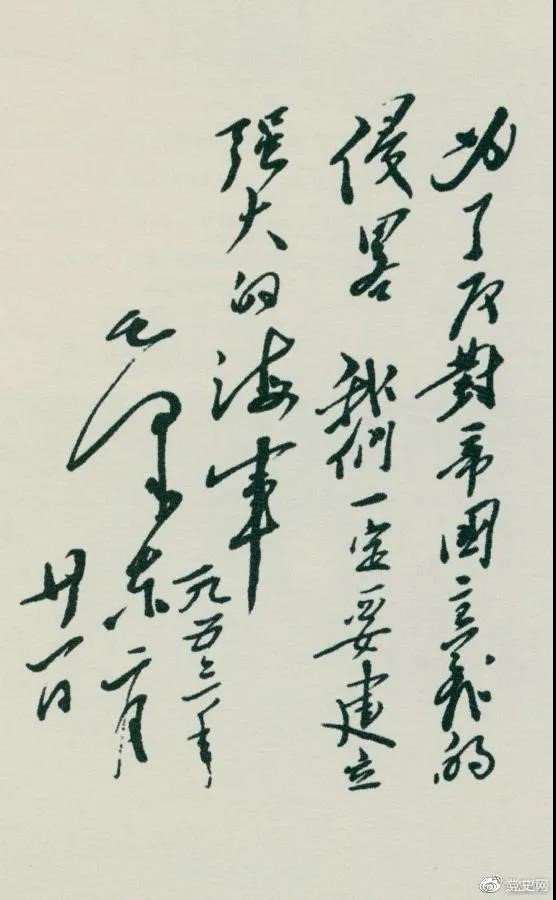 为了反對帝國主義的
侵畧 我們一定要建立
强大的海軍
毛澤东
一九五三年
二月
廿一日
党史网